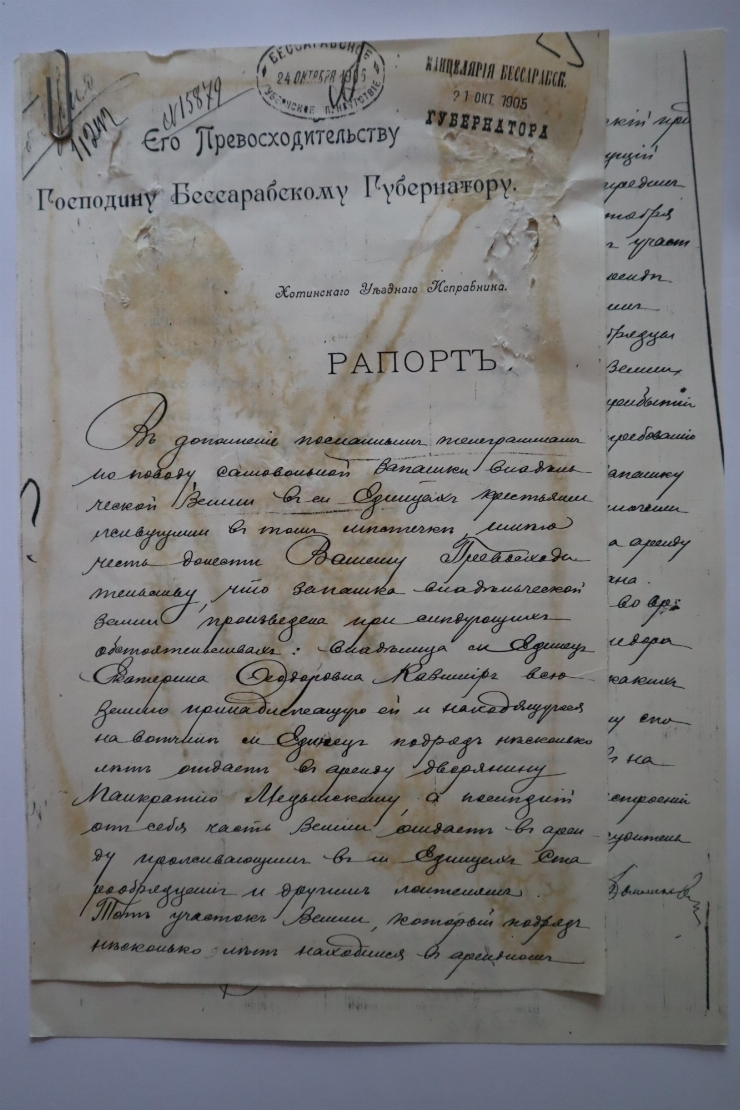 БЕССАРАБСКОЕ
24 ОКТЯБРЯ 1905
КАНЦЕЛЯРІЯ БЕССАРАБСК.
21 ОКТ. 1905
ГУБЕРНАТОРА
11242
№15879
Его Превосходительству
Господину Бессарабскому Губернатору.
Хотинскаго Уѣзднаго Исправника.
РАПОРТЪ.
Въ дополненіе посланнымъ телеграммамъ
по поводу самовольной запашки владѣль-
ческой земли въ м. Единцахъ крестьянами
живущими в томъ мѣстечкѣ, имѣю
честь донести Вашему Превосходи
тельству, что запашка владѣльческой
земли, произведена при слѣдующихъ
обстоятельствахъ: владѣлица м. Единец
Екатерина Феодоровна Казиміръ всю
землю принадлежащую ей и находящуюся
на вотчинѣ м Единец подрядъ нѣсколько
лѣтъ отдаетъ въ аренду дворянину
а послѣдній
отъ себя часть земли, отдаетъ въ арен-
ду проживающимъ въ м Единцахъ Ста
рообрядцамъ и другимъ жителямъ.
Тотъ участокъ земли, который подрядъ
нѣсколько лѣтъ находился въ арендномъ
ущій
тября
участ
земли
требованію
запашку
а аренду
во вре
какихъ
на
строеній